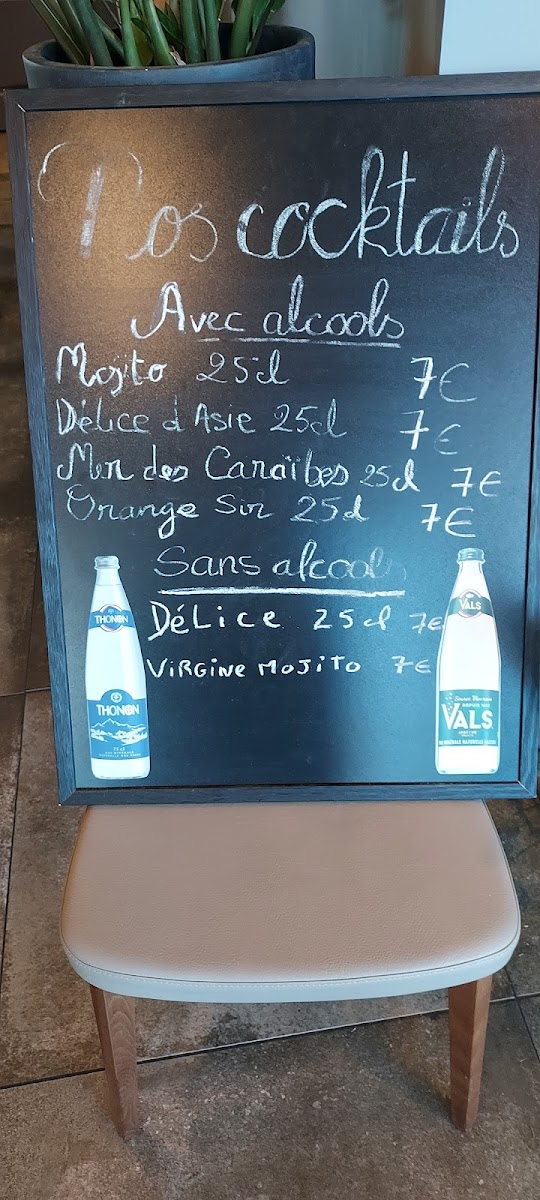 Nos cocktails
Avec alcools
Mojito 25cl 7€
Délice d'Asie 25cl 7€
Mer des Caraïbes 25cl 7€
Orange Sin 25cl 7€
Sans alcools
Délice 25cl 7€
Virgine Mojito 7€
THONON
THONON
VALS
DEPUIS
VALS